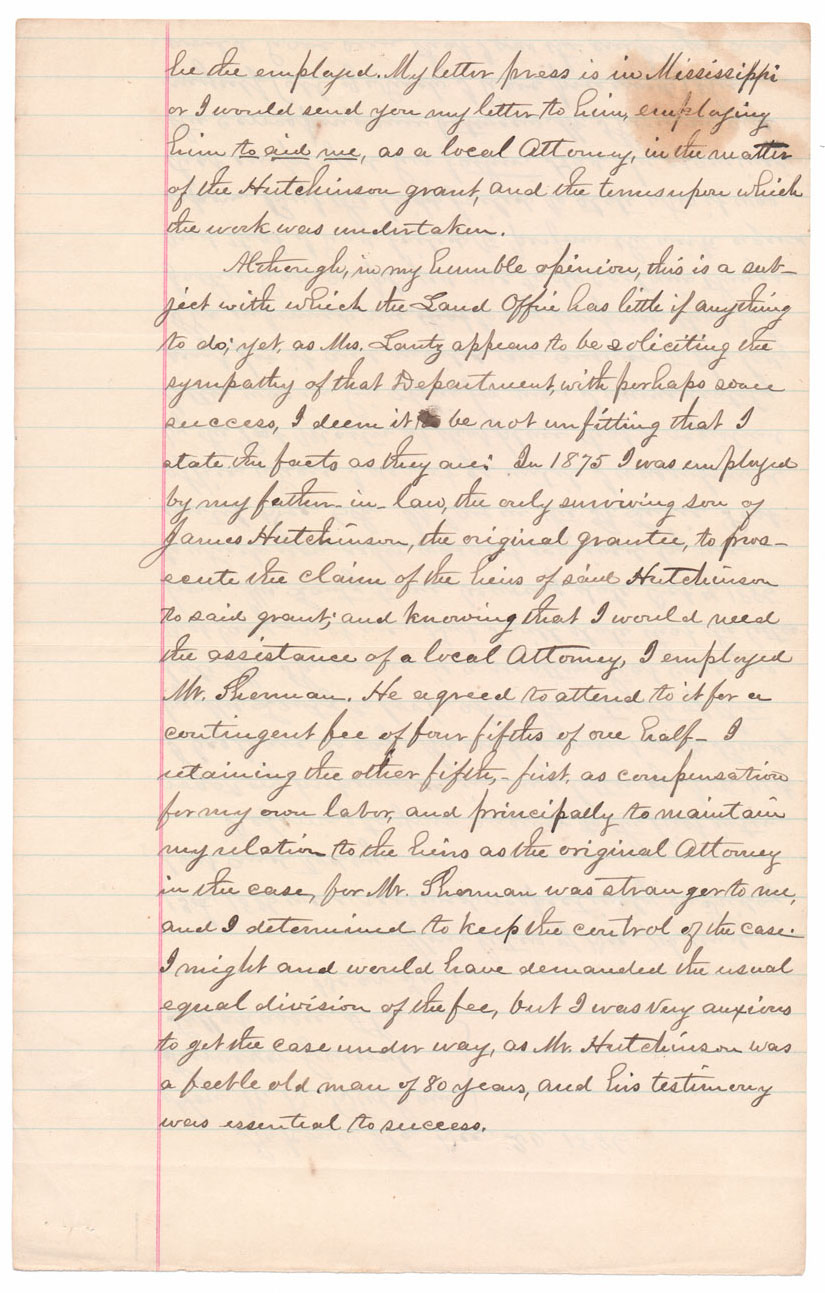 be the employed. My letter press is in Mississippi
or I would send you my letter to him, employing
him to aid me, as a local Attorney, in the matter
of the Hutchinson grant, and the terms upon which
the work was undertaken.
Although, in my humble opinion, this is a sub-
ject with which the Land Office has little if anything
to do; yet, as Mrs. Lantz appears to be soliciting the
sympathy of that Department, with perhaps some
success, I deem it to be not unfitting that I
state the facts as they are: In 1875 I was employed
by my father-in-law, the only surviving son of
James Hutchinson, the original grantee, to pros-
ecute the claim of the heirs of said Hutchinson
to said grant; and knowing that I would need
the assistance of a local Attorney, I employed
Mr. Sherman. He agreed to attend to it for a
contingent fee of four fifths of one half- I
retaining the other fifth,- first, as compensation
for my own labor, and principally to maintain
my relation to the heirs as the original Attorney
in the case, for Mr. Sherman was stranger to me,
and I determined to keep the control of the case.
I might and would have demanded the usual
equal division of the fee, but I was very anxious
to get the case under way, as Mr. Hutchinson was
a feeble old man of 80 years, and his testimony
was essential to success.